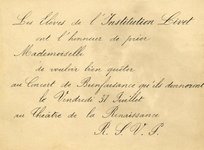 Les Élèves de l'Institution Livet
ont l'honneur de prier
Mademoiselle
de vouloir bien quêter
au Concert de Bienfaisance qu'ils donneront
le Vendredi 31 Juillet
au Théâtre de la Renaissance
R. S. V. P.